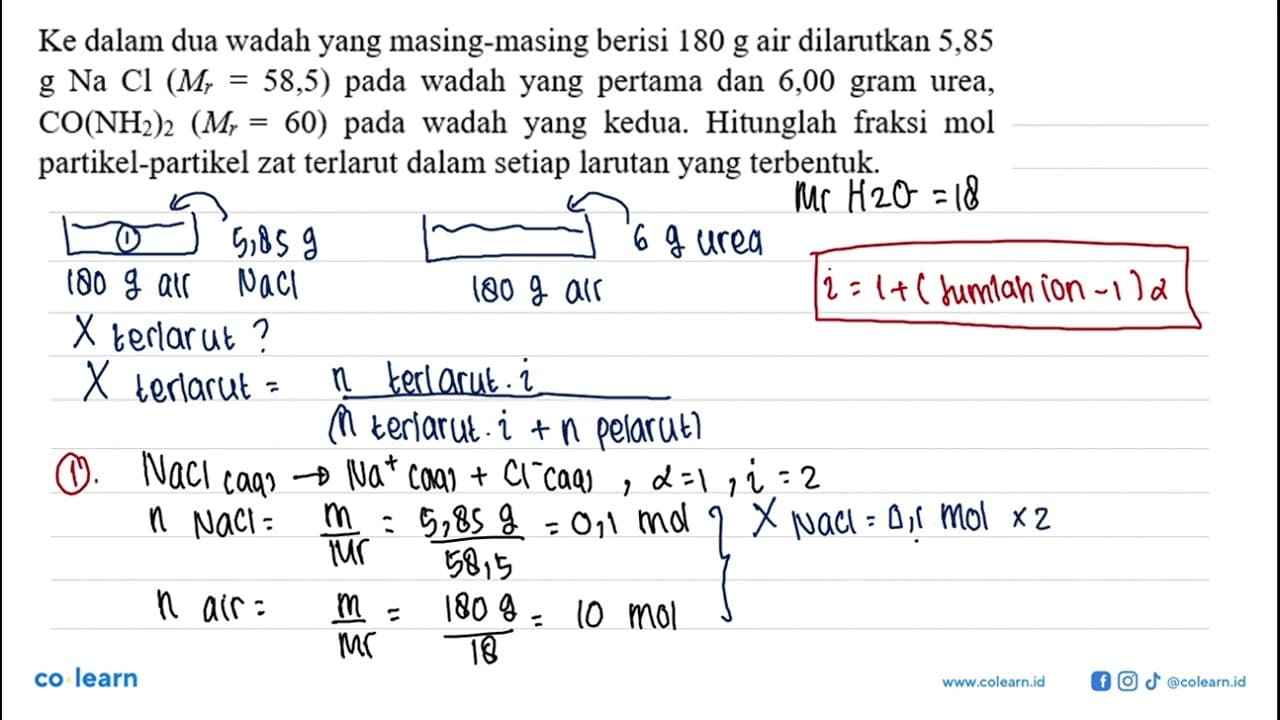 Ke dalam dua wadah yang masing-masing berisi 180 g air dilarutkan 5,85
g Na Cl (Mr = 58,5) pada wadah yang pertama dan 6,00 gram urea,
CO(NH2)2 (Mr = 60) pada wadah yang kedua. Hitunglah fraksi mol
partikel-partikel zat terlarut dalam setiap larutan yang terbentuk.
Mr H2O = 18
① 5,85 g 6 g urea
180 g air NaCl 180 g air
i = 1 + (Jumlah ion - 1) α
X terlarut ?
X terlarut = n terlarut . i
(n terlarut . i + n pelarut)
①. NaCl (aq) → Na+ (aq) + Cl- (aq) , α = 1 , i = 2
n NaCl = m = 5,85 g = 0,1 mol } X NaCl = 0,1 mol x 2
Mr 58,5
n air = m = 180 g = 10 mol
Mr 18
co learn www.colearn.id @colearn.id